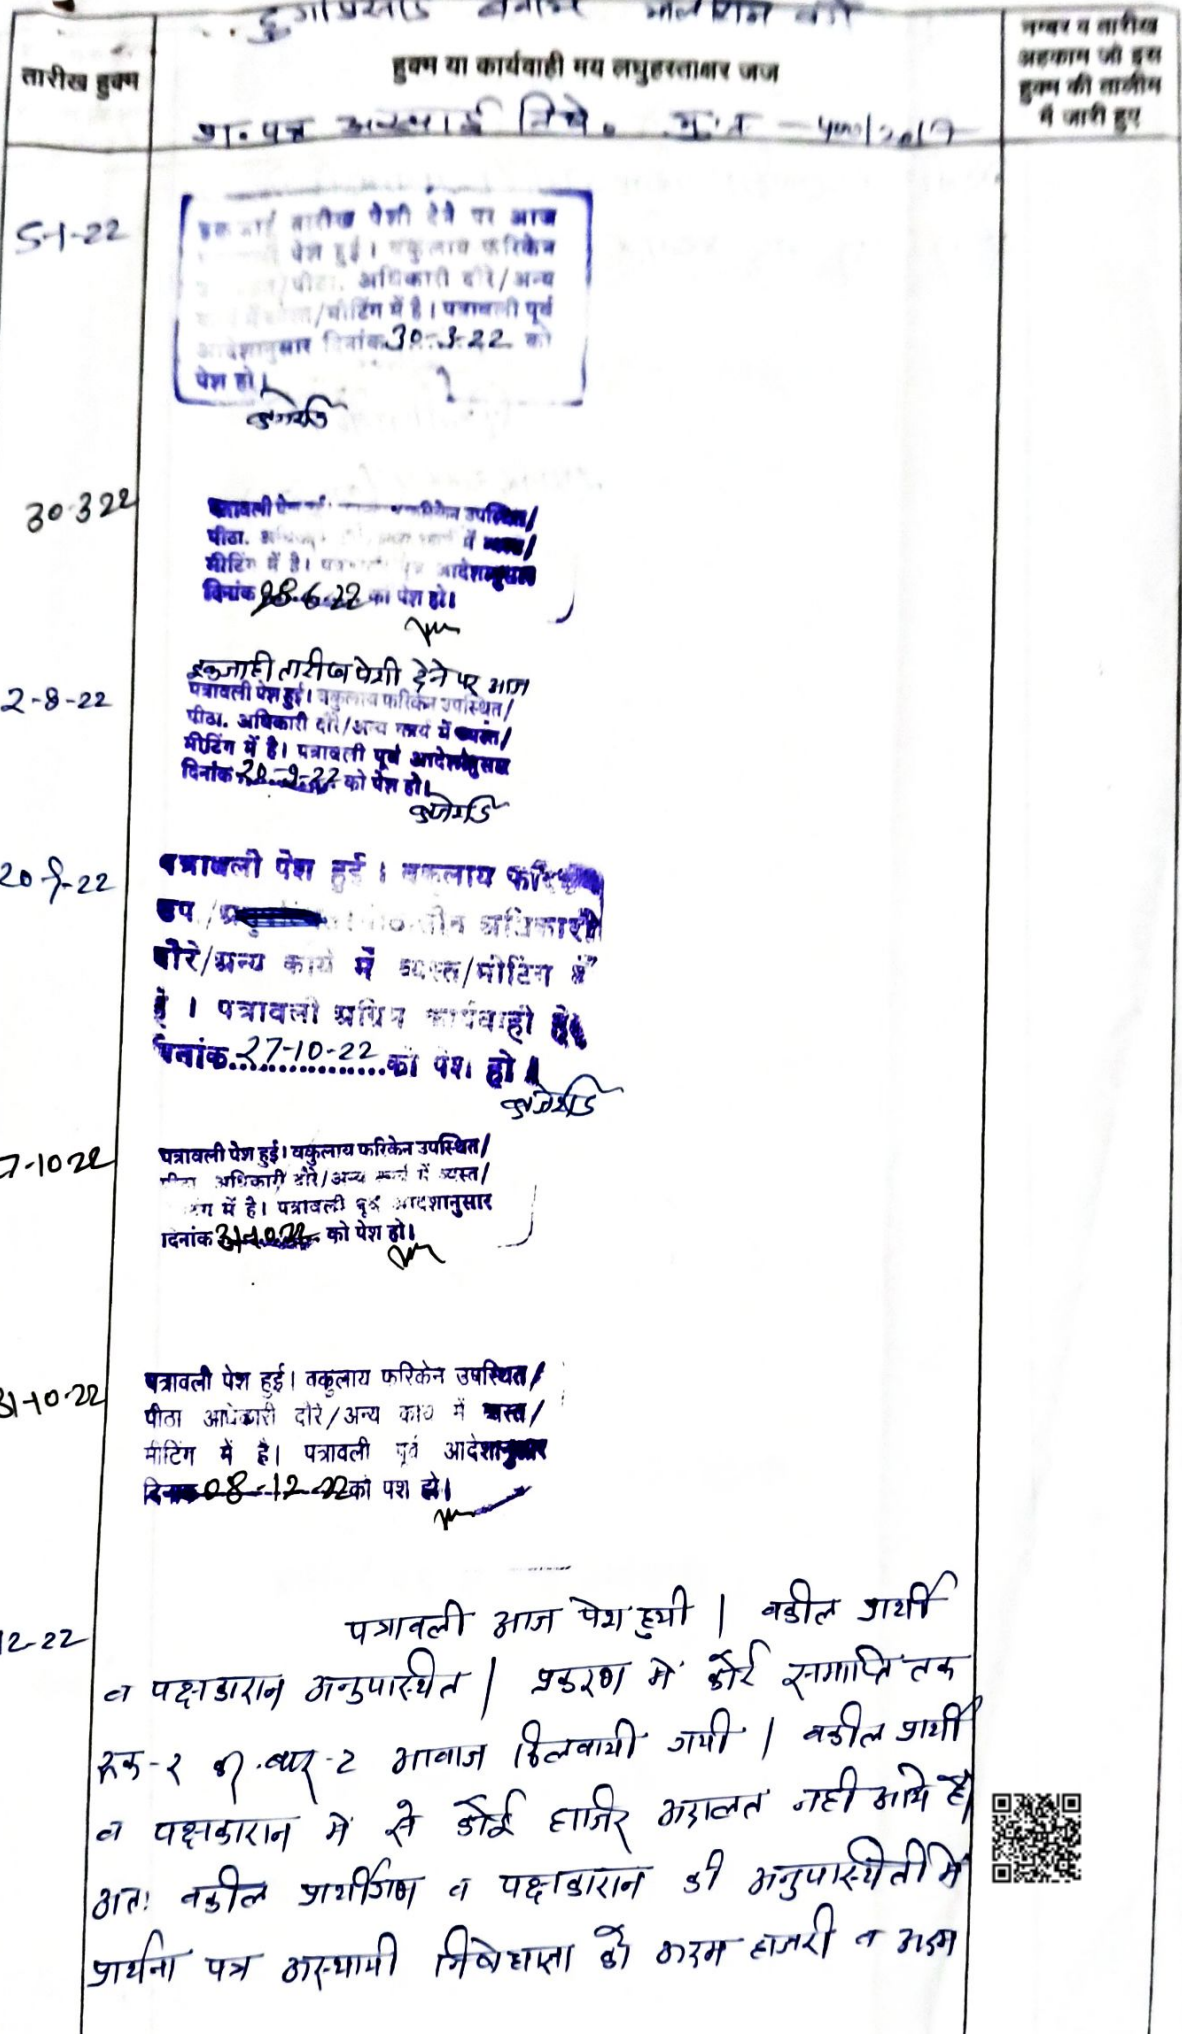 दुर्गाप्रसाद बनाम
तारीख हुक्म
हुक्म या कार्यवाही मय लघुहस्ताक्षर जज
नम्बर व तारीख
अहकाम जो इस
हुक्म की तामील
में जारी हुए
प्रा. पत्र अस्थाई निषे.
5-1-22
तारीख पेशी देने पर आज
पेश हुई। वकुलाय फरिकेन
/पीठा. अधिकारी दौरे/अन्य
/मीटिंग में है। पत्रावली पूर्व
आदेशानुसार दिनांक 30-3-22 को
पेश हो।
30-3-22
पत्रावली पेश फरिकेन उपस्थित/
पीठा. में व्यस्त/
मीटिंग में है। आदेशानुसार
दिनांक 28.6.22 को पेश हो।
इकजाही तारीख पेशी देने पर आज
2-8-22
पत्रावली पेश हुई। वकुलाय फरिकेन उपस्थित/
पीठा. अधिकारी दौरे/अन्य कार्य में व्यस्त/
मीटिंग में है। पत्रावली पूर्व आदेशानुसार
दिनांक 20-9-22 को पेश हो।
20-9-22
पत्रावली पेश हुई। वकलाय
उप./ अधिकारी
दौरे/अन्य कार्य में व्यस्त/मीटिंग में
है। पत्रावली अग्रिम कार्यवाही हेतु
दिनांक 27-10-22 को पेश हो।
7-10-22
पत्रावली पेश हुई। वकुलाय फरिकेन उपस्थित/
अधिकारी दौरे/अन्य कार्य में व्यस्त/
में है। पत्रावली पूर्व आदेशानुसार
दिनांक 31-10-22 को पेश हो।
31-10-22
पत्रावली पेश हुई। वकुलाय फरिकेन उपस्थित/
पीठा अधिकारी दौरे/अन्य कार्य में व्यस्त/
मीटिंग में है। पत्रावली पूर्व आदेशानुसार
दिनांक 08-12-22 को पेश हो।
12-22
पत्रावली आज पेश हुयी। वकील प्रार्थी
व पक्षकारान अनुपास्थित। प्रकरण में कोर्ट समाप्ति तक
आवाज दिलवायी गयी। वकील प्रार्थी
व पक्षकारान में से कोई हाजिर अदालत नही आये है।
अतः वकील प्रार्थीगण व पक्षकारान की अनुपास्थिती में
प्रार्थना पत्र अस्थायी निषेधाज्ञा को अदम हाजरी व अदम